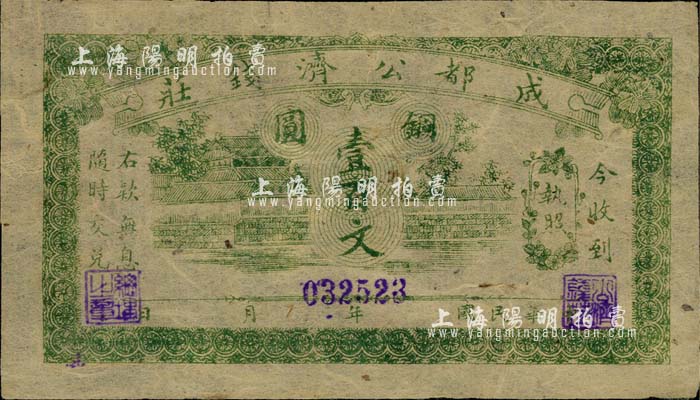 上海陽明拍賣
www.yangmingauction.com
成都公濟錢莊
銅圓
壹
文
今收到
執照
右欵無息
隨時交兌
上海陽明拍賣
www.yangmingauction.com
032523
民國
年
月
日
上海陽明拍賣
www.yangmingauction.com